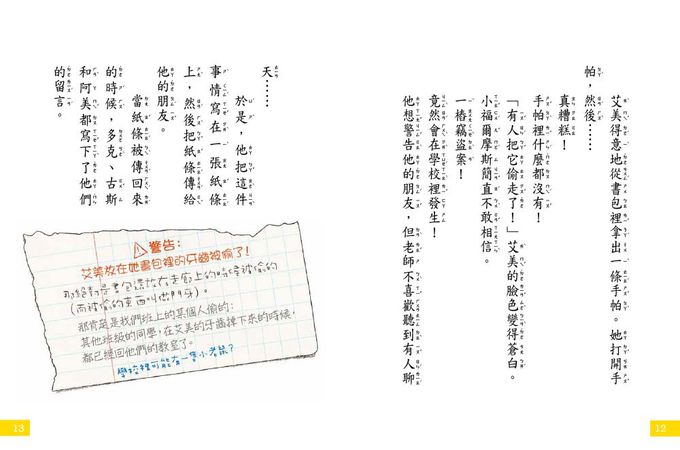 艾美得意地從書包裡拿出一條手帕。她打開手
帕，然後……
真糟糕！
手帕裡什麼都沒有！
「有人把它偷走了！」艾美的臉色變得蒼白。
小福爾摩斯簡直不敢相信。
一樁竊盜案！
竟然會在學校裡發生！
他想警告他的朋友，但老師不喜歡聽到有人聊
12
天……
於是，他把這件
事情寫在一張紙條
上，然後把紙條傳給
他的朋友。
當紙條被傳回來
的時候，多克、古斯
和阿美都寫下了他們
的留言。
警告：
艾美放在她書包裡的牙齒被偷了！
那絕對是書包掛在走廊上的時候被偷的
（而被偷的東西叫做門牙）。
那肯定是我們班上的某個人偷的：
其他班級的同學，在艾美的牙齒掉下來的時候，
都已經回他們的教室了。
學校裡可能有一隻小老鼠？
13